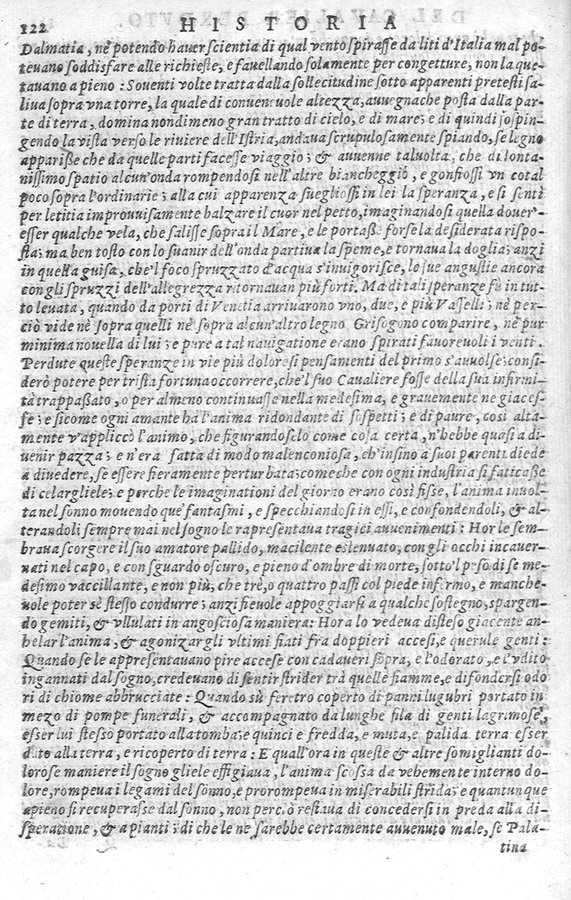 122 HISTORIA
Dalmatia, nè potendo hauer scientia di qual vento spirasse da liti d'Italia mal po-
teuano soddisfare alle richieste, e fauellando solamente per congetture, non la que-
tauano a pieno: Souenti volte tratta dalla sollecitudine sotto apparenti pretesti sa-
liua sopra vna torre, la quale di conueneuole altezza, auuegnache posta dalla par-
te di terra, domina nondimeno gran tratto di cielo, e di mare; e di quindi sospin-
gendo la vista verso le riuiere dell'Istria, andaua scrupulosamente spiando, se legno
apparisse che da quelle parti facesse viaggio; & auuenne taluolta, che di lonta-
nissimo spatio alcun'onda rompendosi nell'altre biancheggiò, e gonfiossi vn cotal
poco sopra l'ordinarie; alla cui apparenza suegliossi in lei la speranza, e si sentè
per letitia improuuisamente balzare il cuor nel petto, imaginandosi quella douer'
esser qualche vela, che salisse sopra il Mare, e le portasse forse la desiderata rispo-
sta; ma ben tosto con lo suanir dell'onda partiua la speme, e tornaua la doglia; anzi
in quella guisa, che'l foco spruzzato d'acqua s'inuigorisce, le sue angustie ancora
con gli spruzzi dell'allegrezza ritornauan più forti. Ma di tali speranze fù in tut-
to leuata, quando da porti di Venetia arriuarono vno, due, e più Vasselli; nè per-
ciò vide nè sopra quelli nè sopra alcun'altro legno Grisogono comparire, nè pur
minima nouella di lui; e pure a tal nauigatione erano spirati fauoreuoli i venti.
Perdute queste speranze in vie più dolorosi pensamenti del primo s'auuolse; consi-
derò potere per trista fortuna occorrere, che'l suo Caualiere fosse della sua infirmi-
tà trappassato, o per almeno continuasse nella medesima, e grauemente ne giaces-
se; e sicome ogni amante ha l'anima ridondante di sospetti; e di paure, così alta-
mente v'appliccò l'animo, che figurandoselo come cosa certa, n'hebbe quasi a di-
uenir pazza; e n'era fatta di modo malenconiosa, ch'insino a suoi parenti diede
a diuedere, se essere fieramente perturbata; comeche con ogni industria si faticasse
di celargliele; e perche le imaginationi del giorno erano così fisse, l'anima inuol-
ta nel sonno mouendo que' fantasmi, e specchiandosi in essi, e confondendoli, & al-
terandoli sempre mai nel sogno le rapresentaua tragici auuenimenti: Hor le sem-
braua scorgere il suo amatore pallido, macilente estenuato, con gli occhi incauer-
nati nel capo, e con sguardo oscuro, e pieno d'ombre di morte, sotto'l peso di se me-
desimo vaccillante, e non più, che trè, o quattro passi col piede infermo, e manche-
uole poter sè stesso condurre; anzi fieuole appoggiarsi a qualche sostegno, spargen-
do gemiti, & vllulati in angosciosa maniera: Hora lo vedeua disteso giacente an-
helar l'anima, & agonizar gli vltimi fiati fra doppieri accesi, e querule genti:
Quando se le appresentauano pire accese con cadaueri sopra, e l'odorato, e l'vdito
ingannati dal sogno, credeuano di sentir strider trà quelle fiamme, e difondersi odo
ri di chiome abbrucciate: Quando sù feretro coperto di panni lugubri portato in
mezo di pompe funerali, & accompagnato da lunghe fila di genti lagrimose,
esser lui stesso portato alla tomba; e quinci e fredda, e muta, e palida terra esser
dato alla terra, e ricoperto di terra: E quall'ora in queste & altre somiglianti do-
lorose maniere il sogno gliele effigiaua, l'anima scossa da vehemente interno do-
lore, rompeua i legami del sonno, e prorompeua in miserabili strida; e quantunque
apieno si recuperasse dal sonno, non perciò restaua di concedersi in preda alla di-
speratione, & a pianti; di che le ne sarebbe certamente auuenuto male, se Pala-
tina